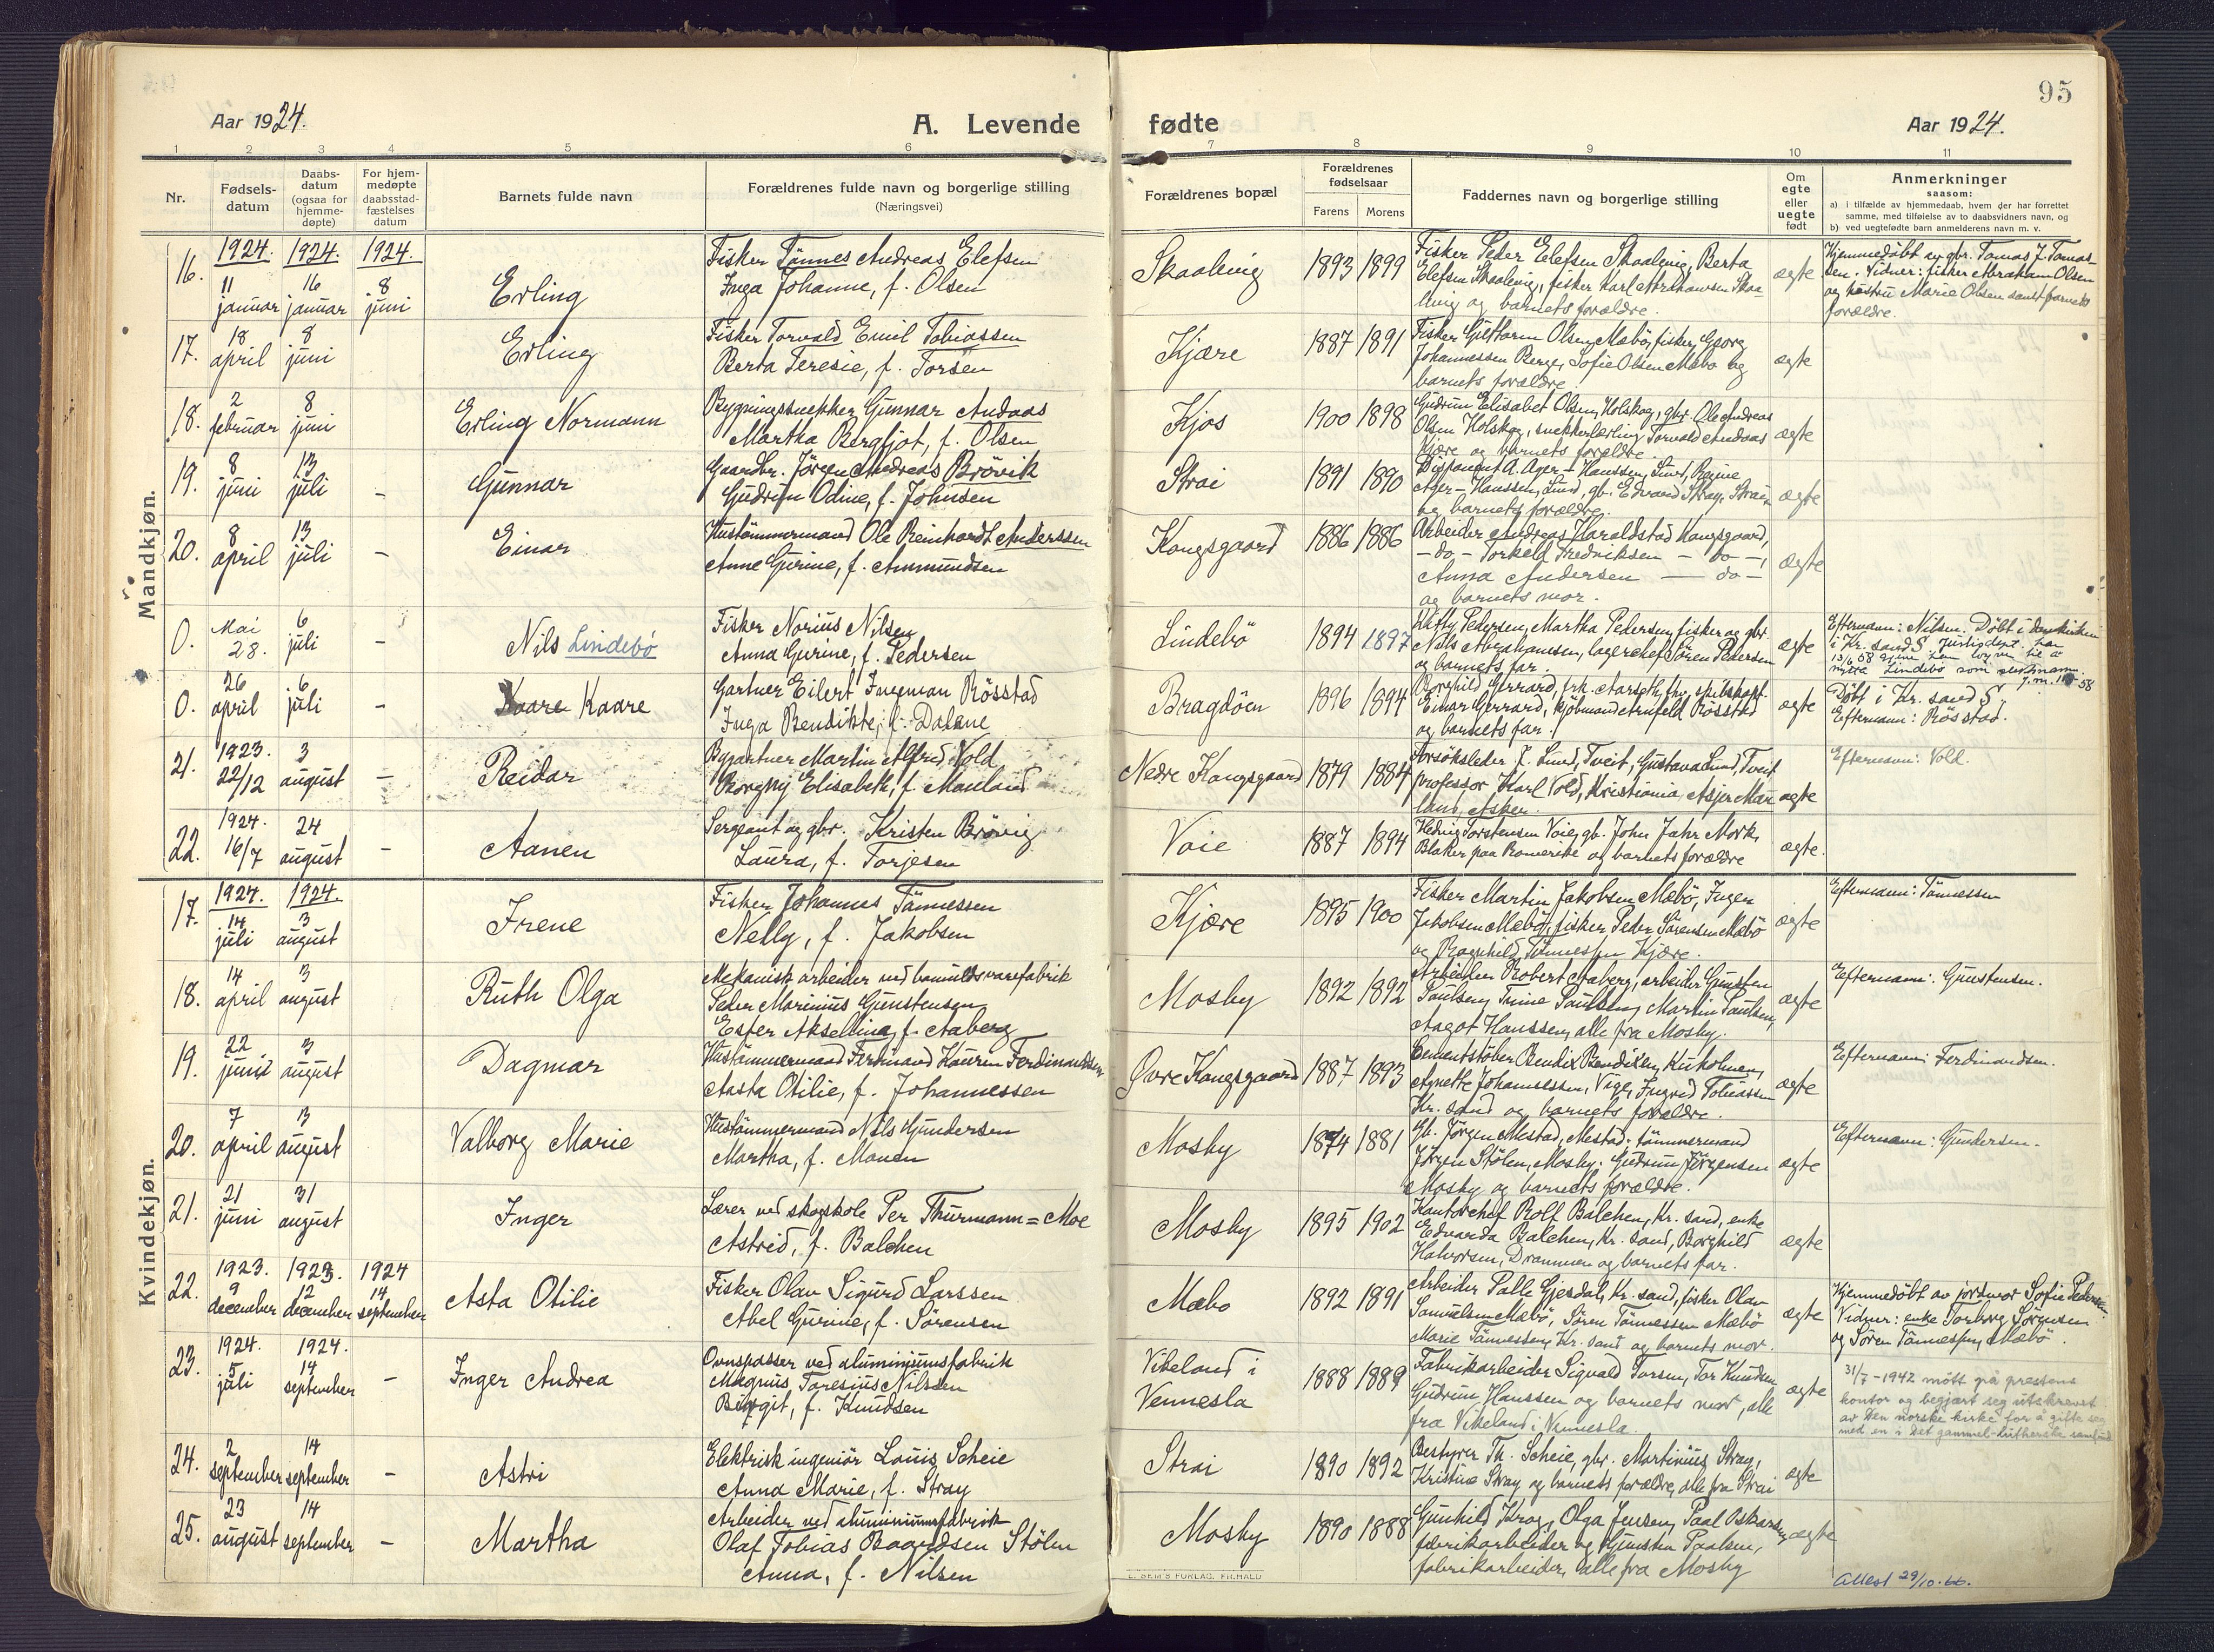 95
Aar 1924.
A. Levende fødte
Aar 1924.
1 2 3 4 5 6 7 8 9 10 11
Nr.
Fødsels-
datum
Daabs-
datum
(ogsaa for
hjemme-
døpte)
For hjem-
medøpte
daabsstad-
fæstelses
datum
Barnets fulde navn
Forældrenes fulde navn og borgerlige stilling
(Næringsvei)
Forældrenes bopæl
Forældrenes
fødselsaar
Farens Morens
Faddernes navn og borgerlige stilling
Om
egte
eller
uegte
født
Anmerkninger
saasom:
a) i tilfælde av hjemmedaab, hvem der har forrettet
samme, med tilføielse av to daabsvidners navn, og
b) ved uegtefødte barn anmelderens navn m. v.
Mandkjøn.
16.
1924. 1924. 1924.
11 januar
16 januar
8 juni
Erling
Fisker Tönnes Andreas Elefsen
Inga Johanne, f. Olsen
Skaalevig
1893 1899
Fisker Peder Elefsen Skaalevig, Berta
Elefsen Skaalevig, fisker Karl Abrahamsen Skaa-
levig og barnets forældre.
ægte
Hjemmedöbt av gbr. Tomas J. Tomas-
sen. Vidner: fisker Abraham Olsen
og hustru Marie Olsen samt barnets
forældre.
17.
18 april
8 juni
Erling
Fisker Torvald Emil Tobiassen
Berta Teresie, f. Torsen
Kjære
1887 1891
Fisker Guttorm Olsen Mæbö, fisker Georg
Johannessen Berge, Sofie Olsen Mæbö og
barnets forældre.
ægte
18.
2 februar
8 juni
Erling Normann
Bygningssnekker Gunnar Andaas
Martha Bergljot, f. Olsen
Kjos
1900 1898
Gudrun Elisabet Olsen, Holskog, gbr. Ole Andreas
Olsen Holskog, snekkerlærling Torvald Andaas
Kjære og barnets forældre.
ægte
19.
8 juni
13 juli
-
Gunnar
Gaardbr. Jörgen Andreas Brövik
Gudrun Odine, f. Johnsen
Strai
1891 1890
Disponent A. Ager-Hanssen, Lund, Regine
Ager-Hanssen, Lund, gb. Edvard Stray, Strai
og barnets forældre.
ægte
20.
8 april
13 juli
-
Einar
Hustömmermand Ole Reinhardt Anderssen
Anne Gurine, f. Ammundsen
Kongsgaard
1886 1886
Arbeider Andreas Haraldstad Kongsgaard,
-do- Torkeld Fredriksen - do -,
Anna Andersen - do -
og barnets mor.
ægte
0.
Mai 28.
6 juli
-
Nils Lindebö
Fisker Norius Nilsen
Anna Gurine, f. Pedersen
Lindebö
1894 1897
Pedersen, Martha Pedersen, fisker og gbr.
Nils Abrahamsen, lagerchef Sören Pedersen
og barnets far.
ægte
Efternavn: Nilsen. Döbt i domkirken
i Kr. sand S.
Lindebö som slektsnavn
0.
26 april
6 juli
-
Kaare
Gartner Eilert Ingeman Rösstad
Inga Bendikte, f. Dalene
Bragdöen
1896 1894
Borghild Gerrard, frk. Aarseth,
Einar Gerrard, kjöbmand Rösstad
og barnets far.
ægte
Döbt i Kr. sand S.
Efternavn: Rösstad.
21.
1923.
22/12
3 august
-
Reidar
Bygartner Martin Alfred Vold
Borgny Elisabeth, f. Mauland
Nedre Kongsgaard
1879 1884
Forsöksleder J. Lund, Tveit, Gustava Lund, Tveit
professor Karl Vold, Kristiania, Asjer Mau-
land, Asker.
ægte
Efternavn: Vold.
22.
1924.
16/7
24 august
-
Aanen
Sergeant og gbr. Kristen Brövig
Laura, f. Torjesen
Voie
1887 1894
Hedvig Torstensen Voie, gb. John Jahr Mork,
Blaker paa Romerike og barnets forældre
ægte.
Kvindekjøn.
17.
1924. 1924.
14 juli
3 august
Irene
Fisker Johannes Tönnessen
Nelly, f. Jakobsen
Kjære
1895 1900
Fisker Martin Jakobsen Mæbö, Inger
Jakobsen Mæbö, fisker Peder Sörensen Mæbö
og Ragnhild Tönnessen Kjære.
ægte
Efternavn: Tönnessen
18.
14 april
3 august
Ruth Olga
Mekanisk arbeider ved bomuldsvarefabrik
Peder Marinius Gunstensen
Ester Akselline, f. Aaberg
Mosby
1892 1892
Arbeider Robert Aaberg, arbeider Gunsten
Paulsen, Trine Paulsen, Martin Paulsen,
Aagot Hanssen, alle fra Mosby.
ægte
Efternavn: Gunstensen.
19.
22 juni
3 august
Dagmar
Hustömmermand Ferdinand Kaurin Ferdinandsen
Aasta Otilie, f. Johannessen
Øvre Kongsgaard
1887 1893
Cementstöber Bendix Bendixen, Kuholmen,
Agnette Johannessen, Vige, Ingrid Tobiassen
Kr. sand og barnets forældre.
ægte
Efternavn: Ferdinandsen.
20.
7 april
3 august
Valborg Marie
Hustömmermand Nils Gundersen
Martha, f. Monen
Mosby
1874 1881
Gb. Jörgen Mestad, Mestad, tömmermand
Jörgen Stölen, Mosby. Gudrun Jörgensen
Mosby og barnets forældre.
ægte
Efternavn: Gundersen.
21.
21 juni
31 august
Inger
Lærer ved skogskole Per Thurmann=Moe
Astrid, f. Balchen
Mosby
1895 1902
Kontorchef Rolf Balchen, Kr. sand, enke
Edvarda Balchen, Kr. sand, Borghild
Halvorsen, Drammen og barnets far.
ægte
22.
1923. 1923. 1924
9 december
12 december
14 september
Asta Otilie
Fisker Olav Sigurd Larssen
Abel Gurine, f. Sörensen
Mæbö
1892 1891
Arbeider Palle Gjesdal, Kr. sand, fisker Olav
Samuelsen Mæbö, Sören Tönnessen Mæbö
Marie Tönnessen, Kr. sand og barnets mor.
ægte
Hjemmedöbt av jordmor Sofie Pedersen
Vidner: enke Torborg Sörensen
og Sören Tönnessen, Mæbö.
23.
1924. 1924.
5 juli
14 september
-
Inger Andrea
Ovnspasser ved aluminiumsfabrik
Magnus Taresius Nilssen
Birgit, f. Knudsen
Vikeland i
Vennesla
1888 1889
Fabrikarbeider Sigvald Torsen, Tor Knudsen
Gudrun Hanssen og barnets mor, alle
fra Vikeland i Vennesla.
ægte
31/7-1942 mött på prestens
kontor og begjært seg utskrevet
av Den norske kirke for å gifte seg
med en i Det gammel-lutherske samfund
24.
2 september
14 september
-
Astri
Elektrisk ingeniör Louis Scheie
Anna Marie, f. Stray
Strai
1890 1892
Bestyrer Th. Scheie, gbr. Martinius Stray,
Kristine Stray og barnets forældre, alle fra Strai
ægte
25.
23 august
14 september
-
Martha
Arbeider ved aluminiumsfabrik
Olaf Tobias Baardsen Stölen
Anna, f. Nilsen
Mosby
1890 1888
Gunhild Krog, Olga Jensen, Paal Oskarsen,
fabrikarbeider og Gunsten Paulsen,
fabrikarbeider, alle fra Mosby
ægte
Attest 29/10-66.